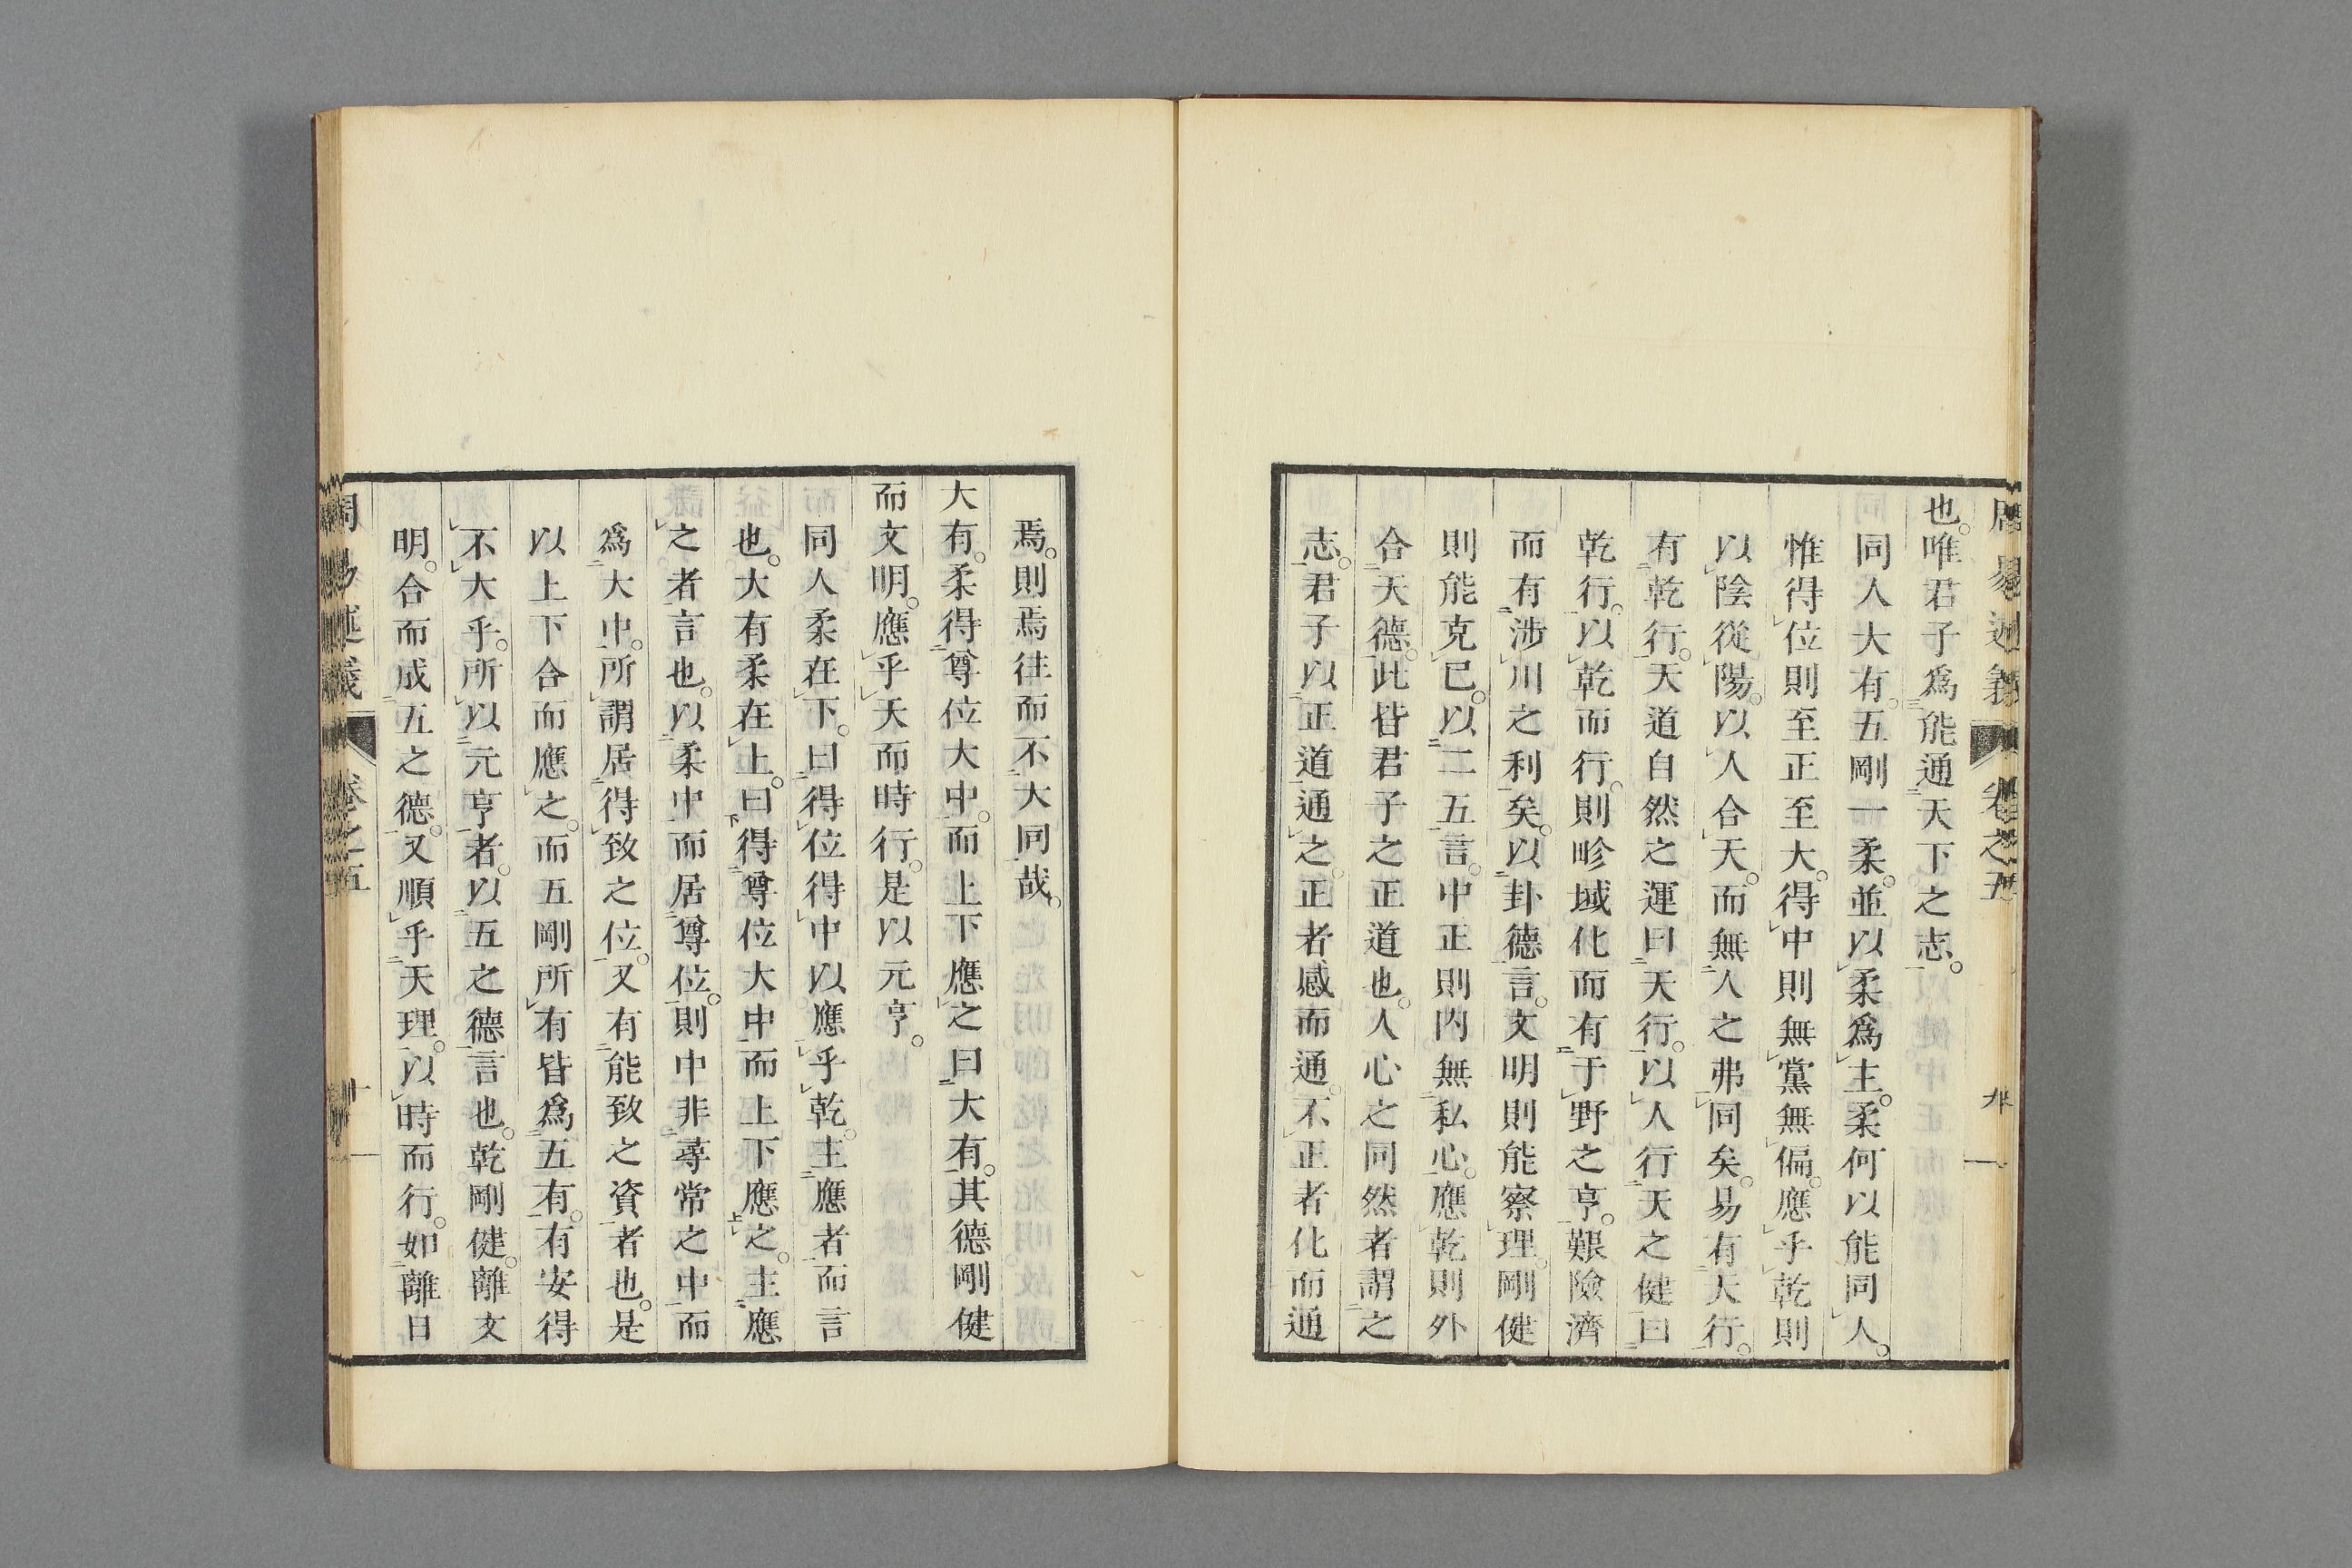 周易述義 卷之五 九
也。唯君子爲能通天下之志。
同人大有。五剛一柔。並以柔爲主。柔何以能同人。
惟得位則至正至大。得中則無黨無偏。應乎乾則
以陰從陽。以人合天。而無人之弗同矣。易有天行。
有乾行。天道自然之運曰天行。以人行天之健曰
乾行。以乾而行。則畛域化而有于野之亨。艱險濟
而有涉川之利矣。以卦德言。文明則能察理。剛健
則能克己。以二五言。中正則內無私心。應乾則外
合天德。此皆君子之正道也。人心之同然者謂之
志。君子以正道通之。正者感而通。不正者化而通
焉。則焉往而不大同哉。
大有。柔得尊位大中。而上下應之曰大有。其德剛健
而文明。應乎天而時行。是以元亨。
同人柔在下。曰得位得中以應乎乾。主應者而言
也。大有柔在上。曰得尊位大中而上下應之。主應
之者言也。以柔中而居尊位。則中非尋常之中而
爲大中。所謂居得致之位。又有能致之資者也。是
以上下合而應之。而五剛所有皆爲五有。有安得
不大乎。所以元亨者。以五之德言也。乾剛健。離文
明。合而成五之德。又順乎天理。以時而行。如離日
周易述義 卷之五 十